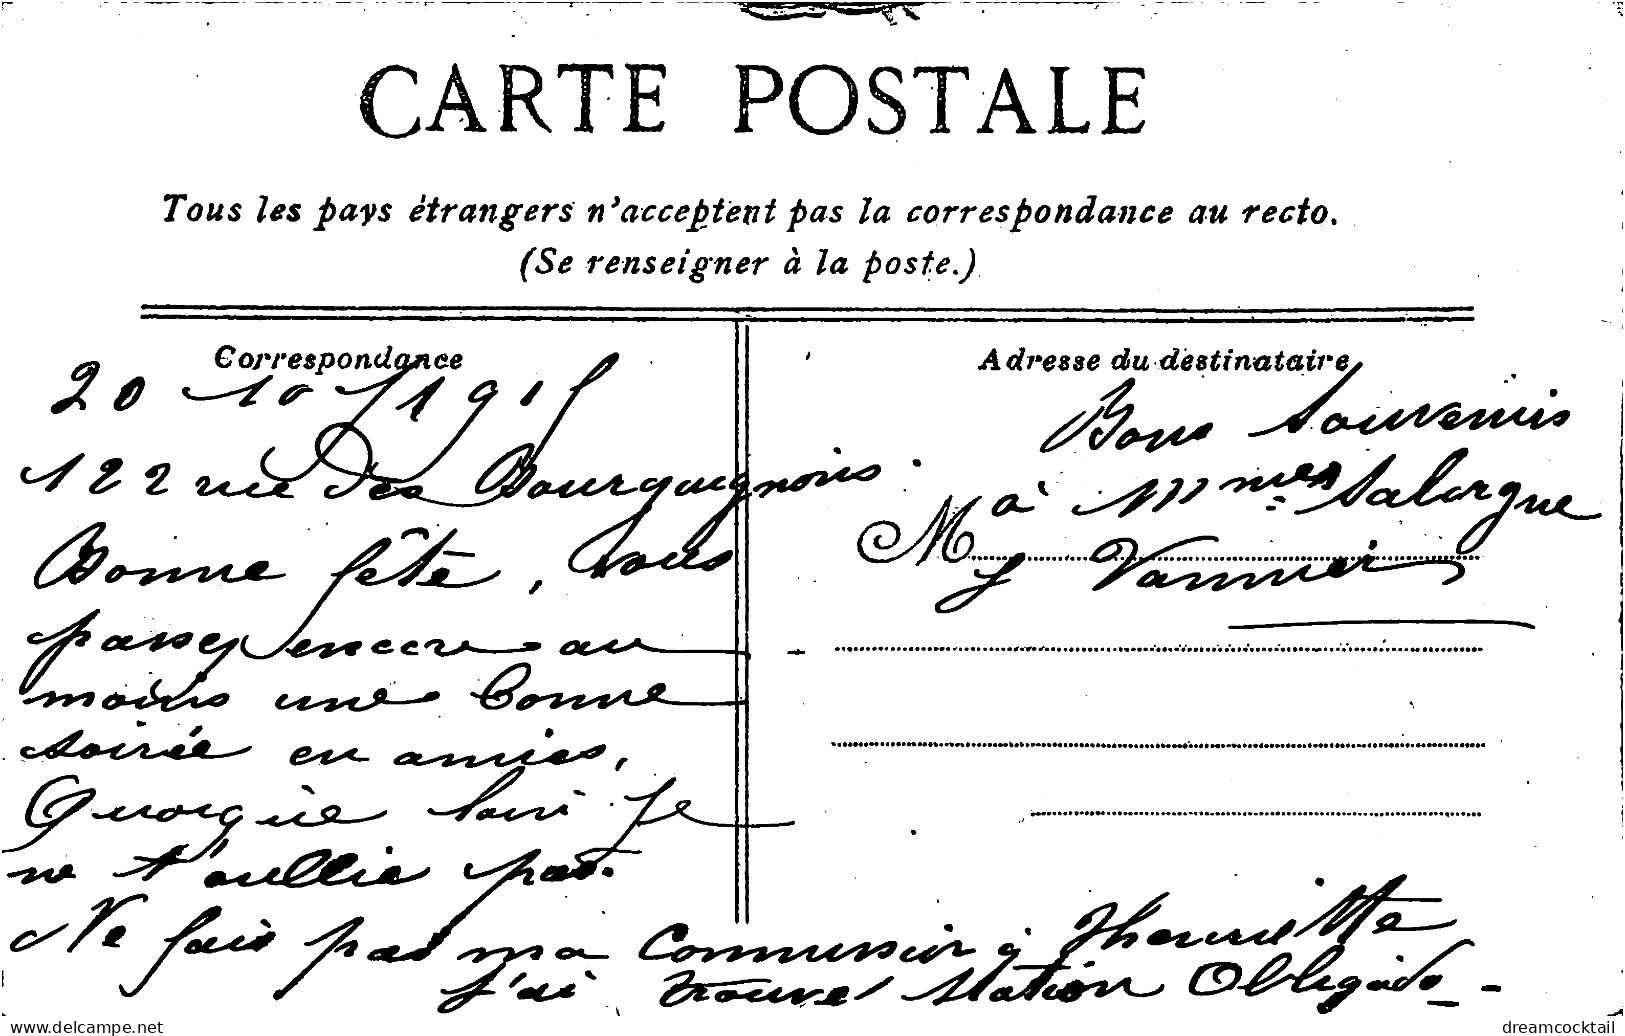 CARTE POSTALE
Tous les pays étrangers n'acceptent pas la correspondance au recto.
(Se renseigner à la poste.)
Correspondance
20 10 / 1915
122 rue des Bourguignons
Bonne fête, vous
passez encore au
moins une bonne
soirée en amies,
Quoique loin je
ne t'oublie pas.
Ne fais pas ma commission à Henriette
J'ai trouvé station Obligado
Adresse du destinataire
Bons souvenirs
à Mmes Salorgue
M
J Vannier
delcampe.net
dreamcocktail